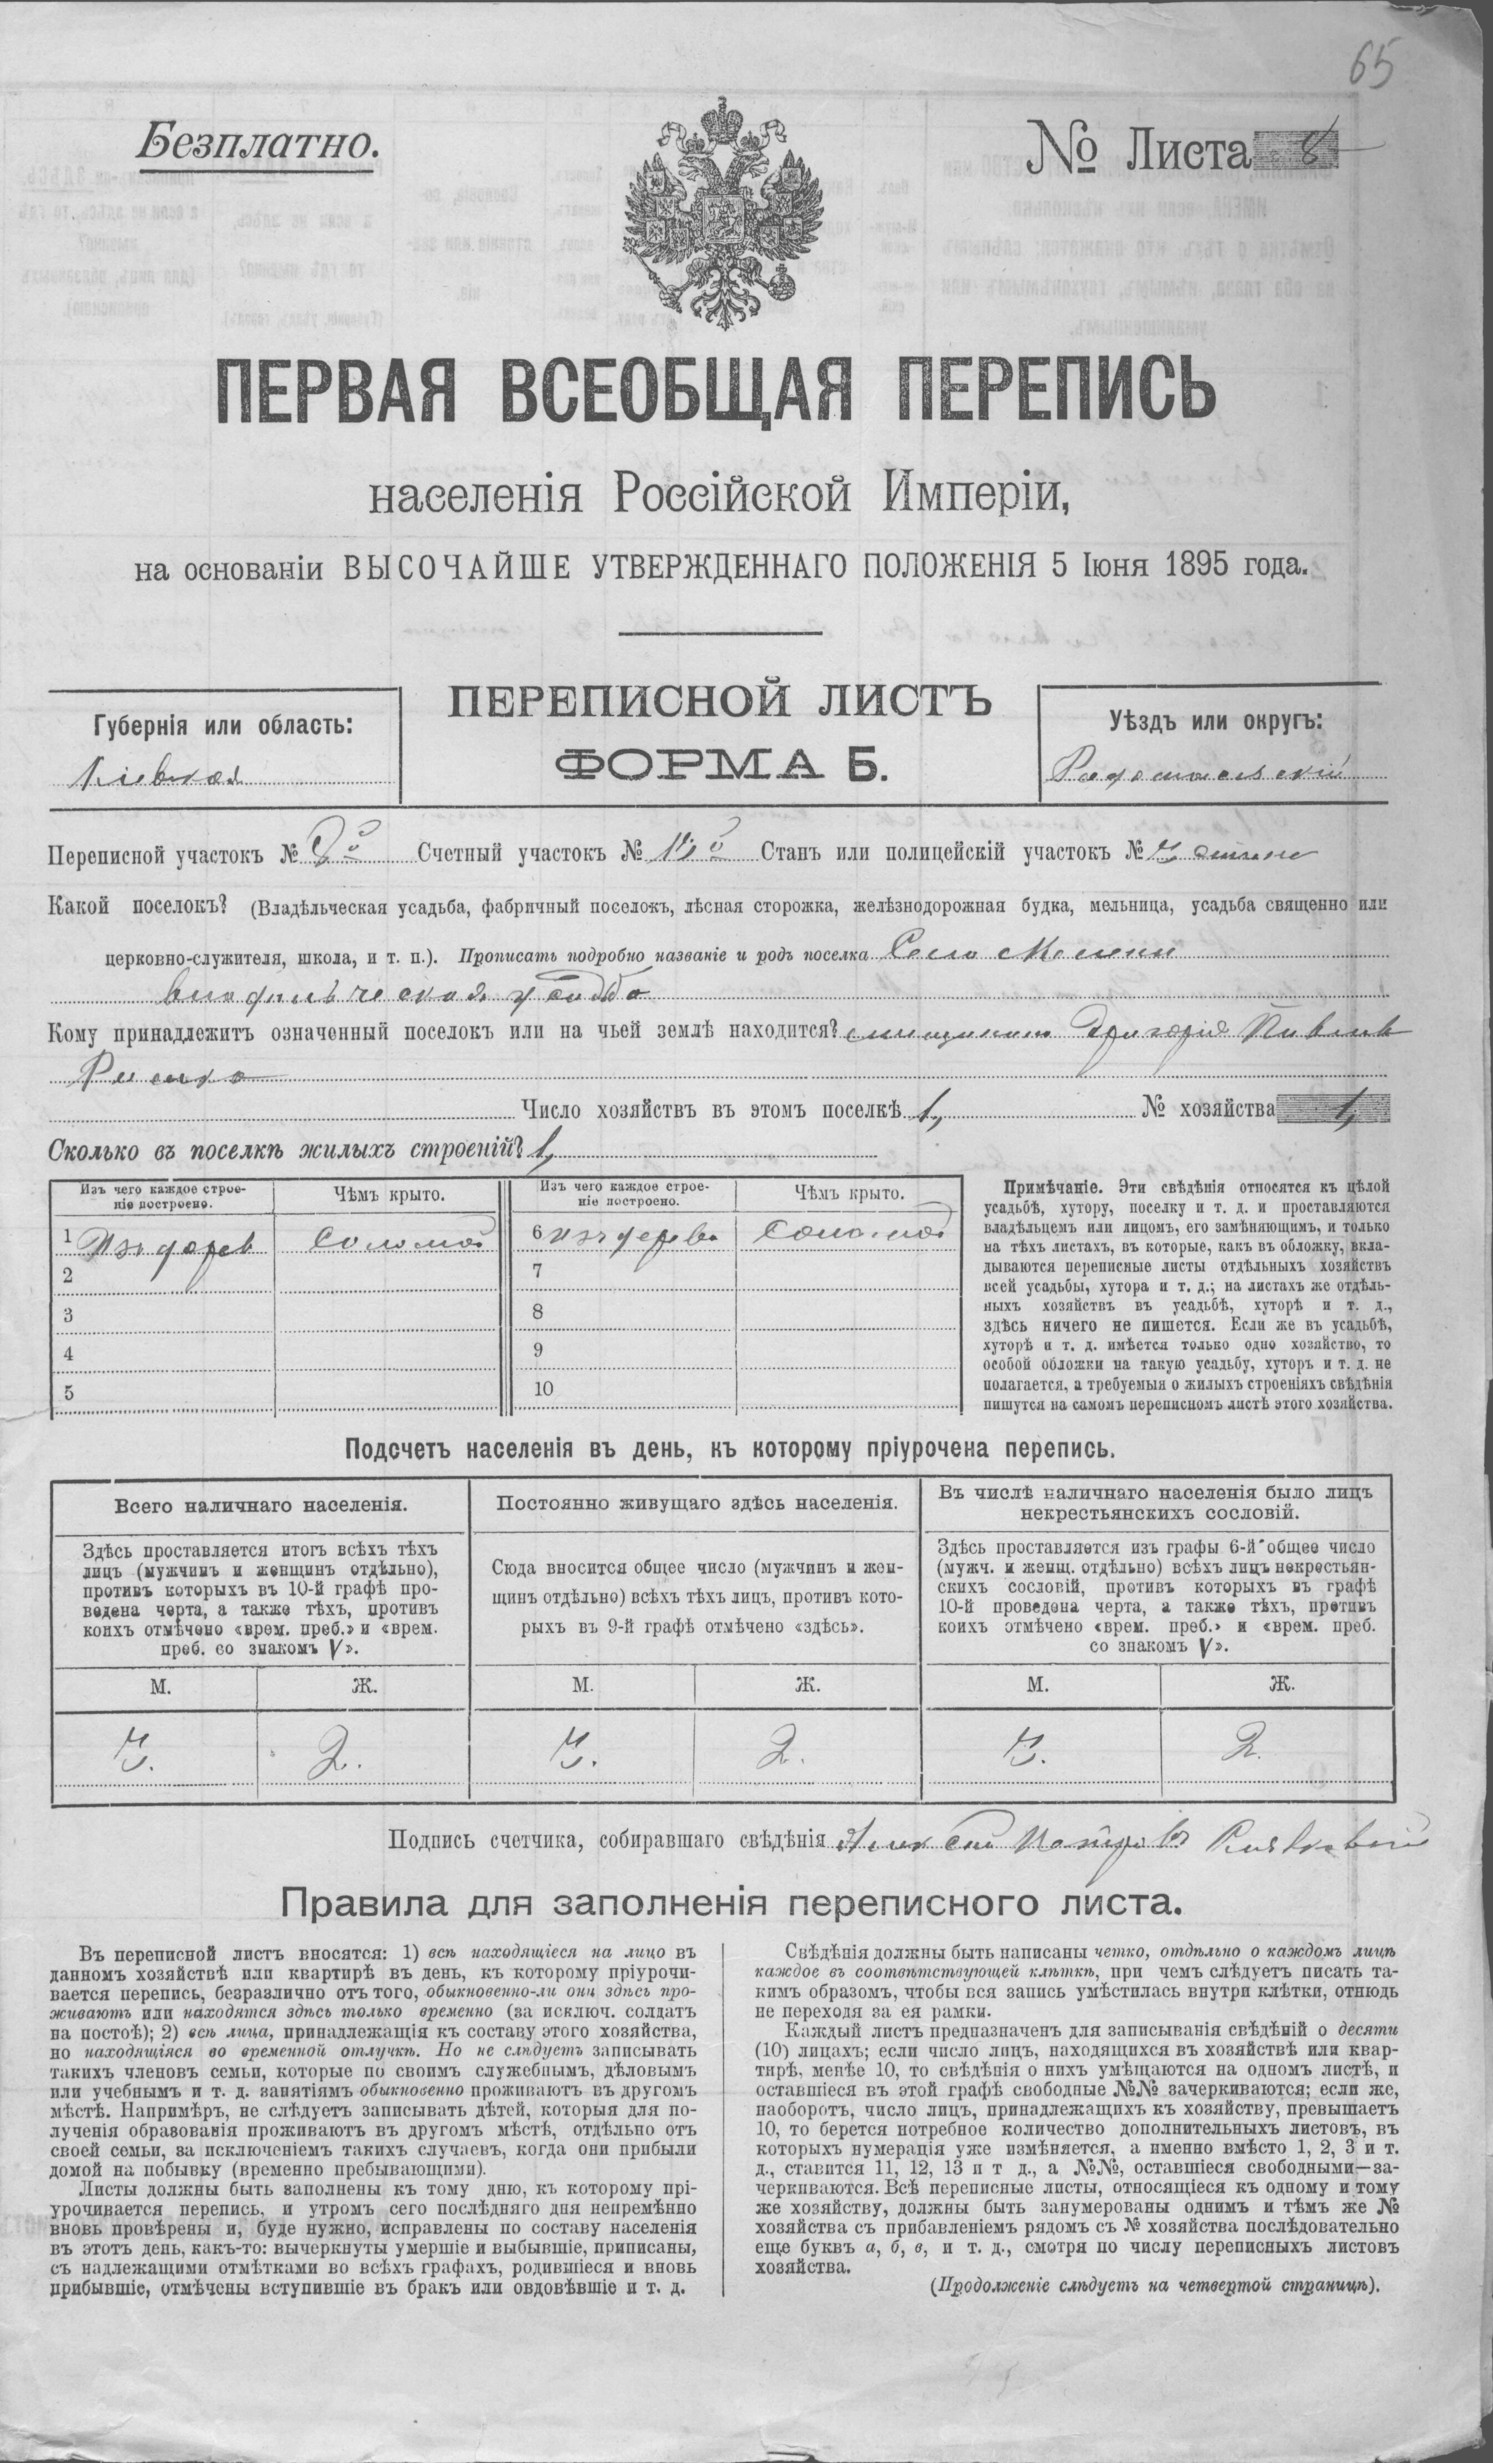 65
Безплатно.
№ Листа 8
ПЕРВАЯ ВСЕОБЩАЯ ПЕРЕПИСЬ
населенія Россійской Имперіи,
на основаніи ВЫСОЧАЙШЕ УТВЕРЖДЕННАГО ПОЛОЖЕНІЯ 5 Іюня 1895 года.
ПЕРЕПИСНОЙ ЛИСТЪ
ФОРМА Б.
Губернія или область:
Кіевская
Уѣздъ или округъ:
Радомысльскій
Переписной участокъ № Счетный участокъ № Станъ или полицейскій участокъ №
Какой поселокъ? (Владѣльческая усадьба, фабричный поселокъ, лѣсная сторожка, желѣзнодорожная будка, мельница, усадьба священно или
церковно-служителя, школа, и т. п.). Прописать подробно названіе и родъ поселка Село
владѣльческая усадьба
Кому принадлежитъ означенный поселокъ или на чьей землѣ находится? Григорія
Число хозяйствъ въ этомъ поселкѣ 1, № хозяйства 1,
Сколько въ поселкѣ жилыхъ строеній? 1,
Изъ чего каждое строе-
ніе построено.
Чѣмъ крыто.
Изъ чего каждое строе-
ніе построено.
Чѣмъ крыто.
1 Изъ дерев Соломой
6 изъ дерева Соломой
2
7
3
8
4
9
5
10
Примѣчаніе. Эти свѣдѣнія относятся къ цѣлой
усадьбѣ, хутору, поселку и т. д. и проставляются
владѣльцемъ или лицомъ, его замѣняющимъ, и только
на тѣхъ листахъ, въ которые, какъ въ обложку, вкла-
дываются переписные листы отдѣльныхъ хозяйствъ
всей усадьбы, хутора и т. д.; на листахъ же отдѣль-
ныхъ хозяйствъ въ усадьбѣ, хуторѣ и т. д.,
здѣсь ничего не пишется. Если же въ усадьбѣ,
хуторѣ и т. д. имѣется только одно хозяйство, то
особой обложки на такую усадьбу, хуторъ и т. д. не
полагается, а требуемыя о жилыхъ строеніяхъ свѣдѣнія
пишутся на самомъ переписномъ листѣ этого хозяйства.
Подсчетъ населенія въ день, къ которому пріурочена перепись.
Всего наличнаго населенія.
Здѣсь проставляется итогъ всѣхъ тѣхъ
лицъ (мужчинъ и женщинъ отдѣльно),
противъ которыхъ въ 10-й графѣ про-
ведена черта, а также тѣхъ, противъ
коихъ отмѣчено «врем. преб.» и «врем.
преб. со знакомъ V».
Постоянно живущаго здѣсь населенія.
Сюда вносится общее число (мужчинъ и жен-
щинъ отдѣльно) всѣхъ тѣхъ лицъ, противъ кото-
рыхъ въ 9-й графѣ отмѣчено «здѣсь».
Въ числѣ наличнаго населенія было лицъ
некрестьянскихъ сословій.
Здѣсь проставляется изъ графы 6-й общее число
(мужч. и женщ. отдѣльно) всѣхъ лицъ некрестьян-
скихъ сословій, противъ которыхъ въ графѣ
10-й проведена черта, а также тѣхъ, противъ
коихъ отмѣчено «врем. преб.» и «врем. преб.
со знакомъ V».
М. Ж. М. Ж. М. Ж.
2. 2. 2.
Подпись счетчика, собиравшаго свѣдѣнія
Правила для заполненія переписного листа.
Въ переписной листъ вносятся: 1) всѣ находящіеся на лицо въ
данномъ хозяйствѣ или квартирѣ въ день, къ которому пріурочи-
вается перепись, безразлично отъ того, обыкновенно-ли они здѣсь про-
живаютъ или находятся здѣсь только временно (за исключ. солдатъ
на постоѣ); 2) всѣ лица, принадлежащія къ составу этого хозяйства,
но находящіяся во временной отлучкѣ. Но не слѣдуетъ записывать
такихъ членовъ семьи, которые по своимъ служебнымъ, дѣловымъ
или учебнымъ и т. д. занятіямъ обыкновенно проживаютъ въ другомъ
мѣстѣ. Напримѣръ, не слѣдуетъ записывать дѣтей, которыя для по-
лученія образованія проживаютъ въ другомъ мѣстѣ, отдѣльно отъ
своей семьи, за исключеніемъ такихъ случаевъ, когда они прибыли
домой на побывку (временно пребывающими).
Листы должны быть заполнены къ тому дню, къ которому прі-
урочивается перепись, и утромъ сего послѣдняго дня непремѣнно
вновь провѣрены и, буде нужно, исправлены по составу населенія
въ этотъ день, какъ-то: вычеркнуты умершіе и выбывшіе, приписаны,
съ надлежащими отмѣтками во всѣхъ графахъ, родившіеся и вновь
прибывшіе, отмѣчены вступившіе въ бракъ или овдовѣвшіе и т. д.
Свѣдѣнія должны быть написаны четко, отдѣльно о каждомъ лицѣ
каждое въ соотвѣтствующей клѣткѣ, при чемъ слѣдуетъ писать та-
кимъ образомъ, чтобы вся запись умѣстилась внутри клѣтки, отнюдь
не переходя за ея рамки.
Каждый листъ предназначенъ для записыванія свѣдѣній о десяти
(10) лицахъ; если число лицъ, находящихся въ хозяйствѣ или квар-
тирѣ, менѣе 10, то свѣдѣнія о нихъ умѣщаются на одномъ листѣ, и
оставшіеся въ этой графѣ свободные №№ зачеркиваются; если же,
наоборотъ, число лицъ, принадлежащихъ къ хозяйству, превышаетъ
10, то берется потребное количество дополнительныхъ листовъ, въ
которыхъ нумерація уже измѣняется, а именно вмѣсто 1, 2, 3 и т.
д., ставится 11, 12, 13 и т д., а №№, оставшіеся свободными—за-
черкиваются. Всѣ переписные листы, относящіеся къ одному и тому
же хозяйству, должны быть занумерованы однимъ и тѣмъ же №
хозяйства съ прибавленіемъ рядомъ съ № хозяйства послѣдовательно
еще буквъ а, б, в, и т. д., смотря по числу переписныхъ листовъ
хозяйства.
(Продолженіе слѣдуетъ на четвертой страницѣ).